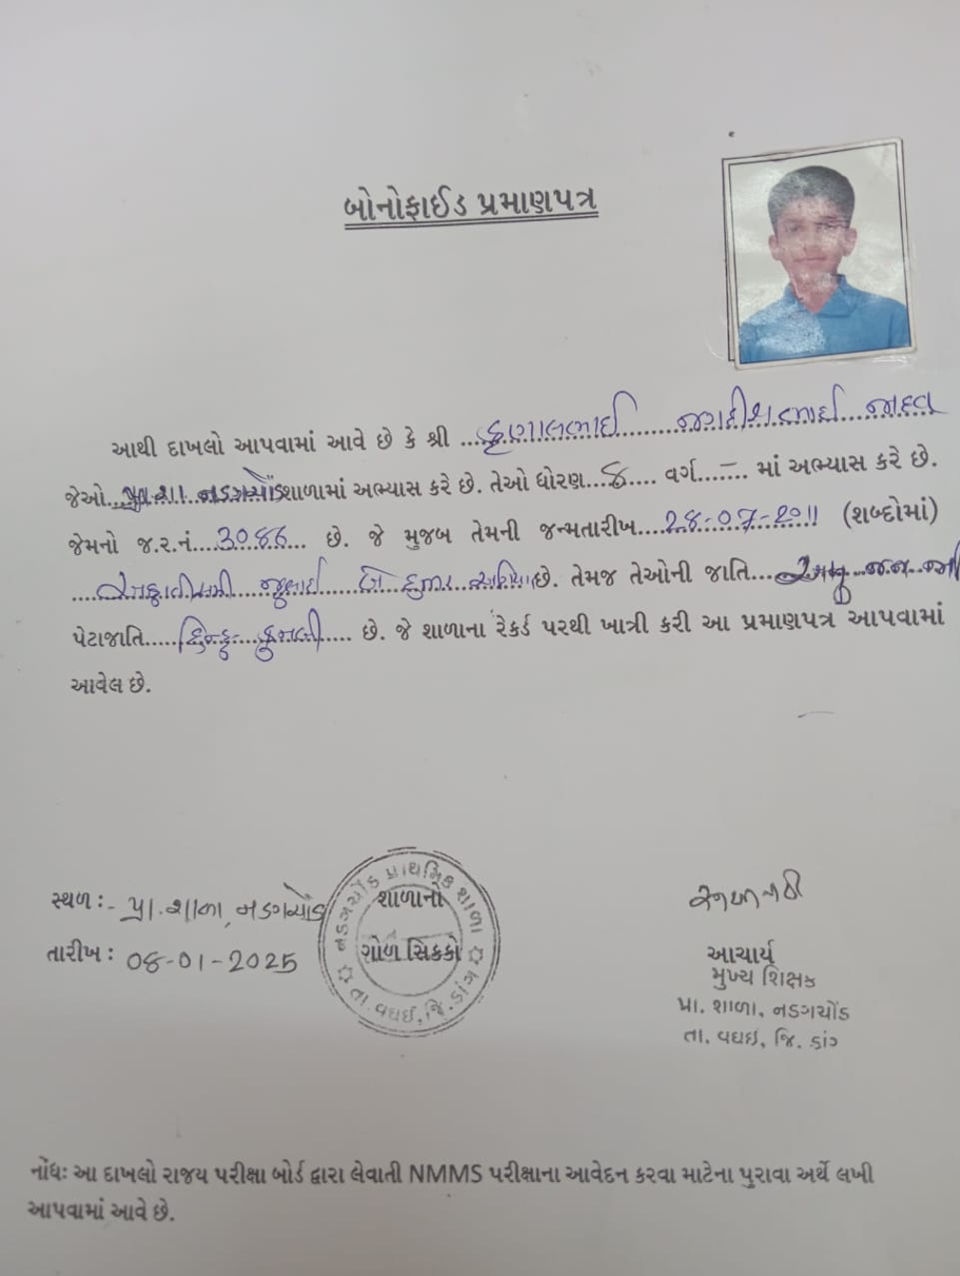 બોનોફાઈડ પ્રમાણપત્ર
આથી દાખલો આપવામાં આવે છે કે શ્રી ...કૃણાલભાઈ...... જગદીશભાઈ... જાદવ
જેઓ...પ્રા.શા. નડગચોંડ શાળામાં અભ્યાસ કરે છે. તેઓ ધોરણ...૮.... વર્ગ...–... માં અભ્યાસ કરે છે.
જેમનો જ.ર.નં....3086... છે. જે મુજબ તેમની જન્મતારીખ....28-07-2011 (શબ્દોમાં)
.... જુલાઈ બે હજાર અગિયાર છે. તેમજ તેઓની જાતિ.... અનુ. જન જાતિ
પેટાજાતિ.....હિન્દુ કુનબી..... છે. જે શાળાના રેકર્ડ પરથી ખાત્રી કરી આ પ્રમાણપત્ર આપવામાં
આવેલ છે.
સ્થળ :- પ્રા. શાળા, નડગચોંડ
તારીખ : 08-01-2025
નડગચોંડ પ્રાથમિક શાળા
શાળાનો
ગોળ સિક્કો
તા. વઘઇ, જિ. ડાંગ
આચાર્ય
મુખ્ય શિક્ષક
પ્રા. શાળા, નડગચોંડ
તા. વઘઇ, જિ. ડાંગ
નોંધઃ આ દાખલો રાજ્ય પરીક્ષા બોર્ડ દ્વારા લેવાતી NMMS પરીક્ષાના આવેદન કરવા માટેના પુરાવા અર્થે લખી
આપવામાં આવે છે.